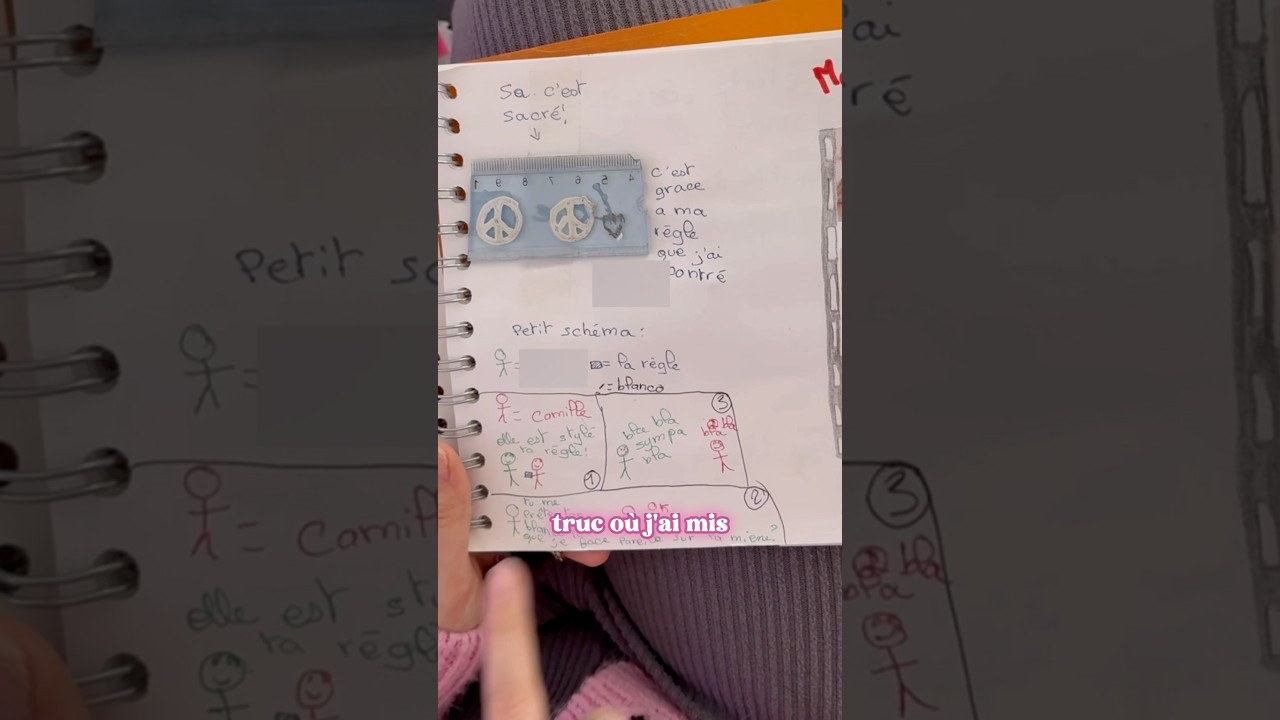 Sa c'est
sacré!
c'est
grace
a ma
règle
que j'ai
Petit schéma:
= = la règle
= blanco
= camille
elle est stylé
ta règle!
1
3
bla bla
sympa
bla
bla
2
tu me
OK
que je face pareille sur la miene?
truc où j'ai mis